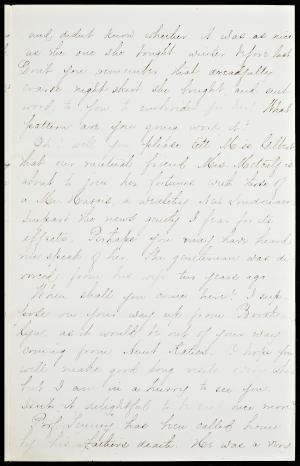 and didn't know whether it was as nice
as the one she bought winter before last
Don't you remember that dreadfully
coarse night shirt she bought and sent
word to you to embroider for her? What
pattern are you going work it?
Oh! will you please tell Miss
that our mutual friend Mrs. Metcalf is
about to join her fortunes with those of
a Mr. Harris, a wealthy New Londoner.
Impart the news gently I fear for its
effects. Perhaps you may have heard
me speak of her. The gentleman was di-
vorced from his wife ten years ago.
When shall you come here? I sup-
pose on your way up from
as it would be out of your way
coming from Aunt I hope you
will make good long visits
but I am in a hurry to see you.
Isn't it delightful to be once more
Prof. has been called home
by his Father's death. He was a very